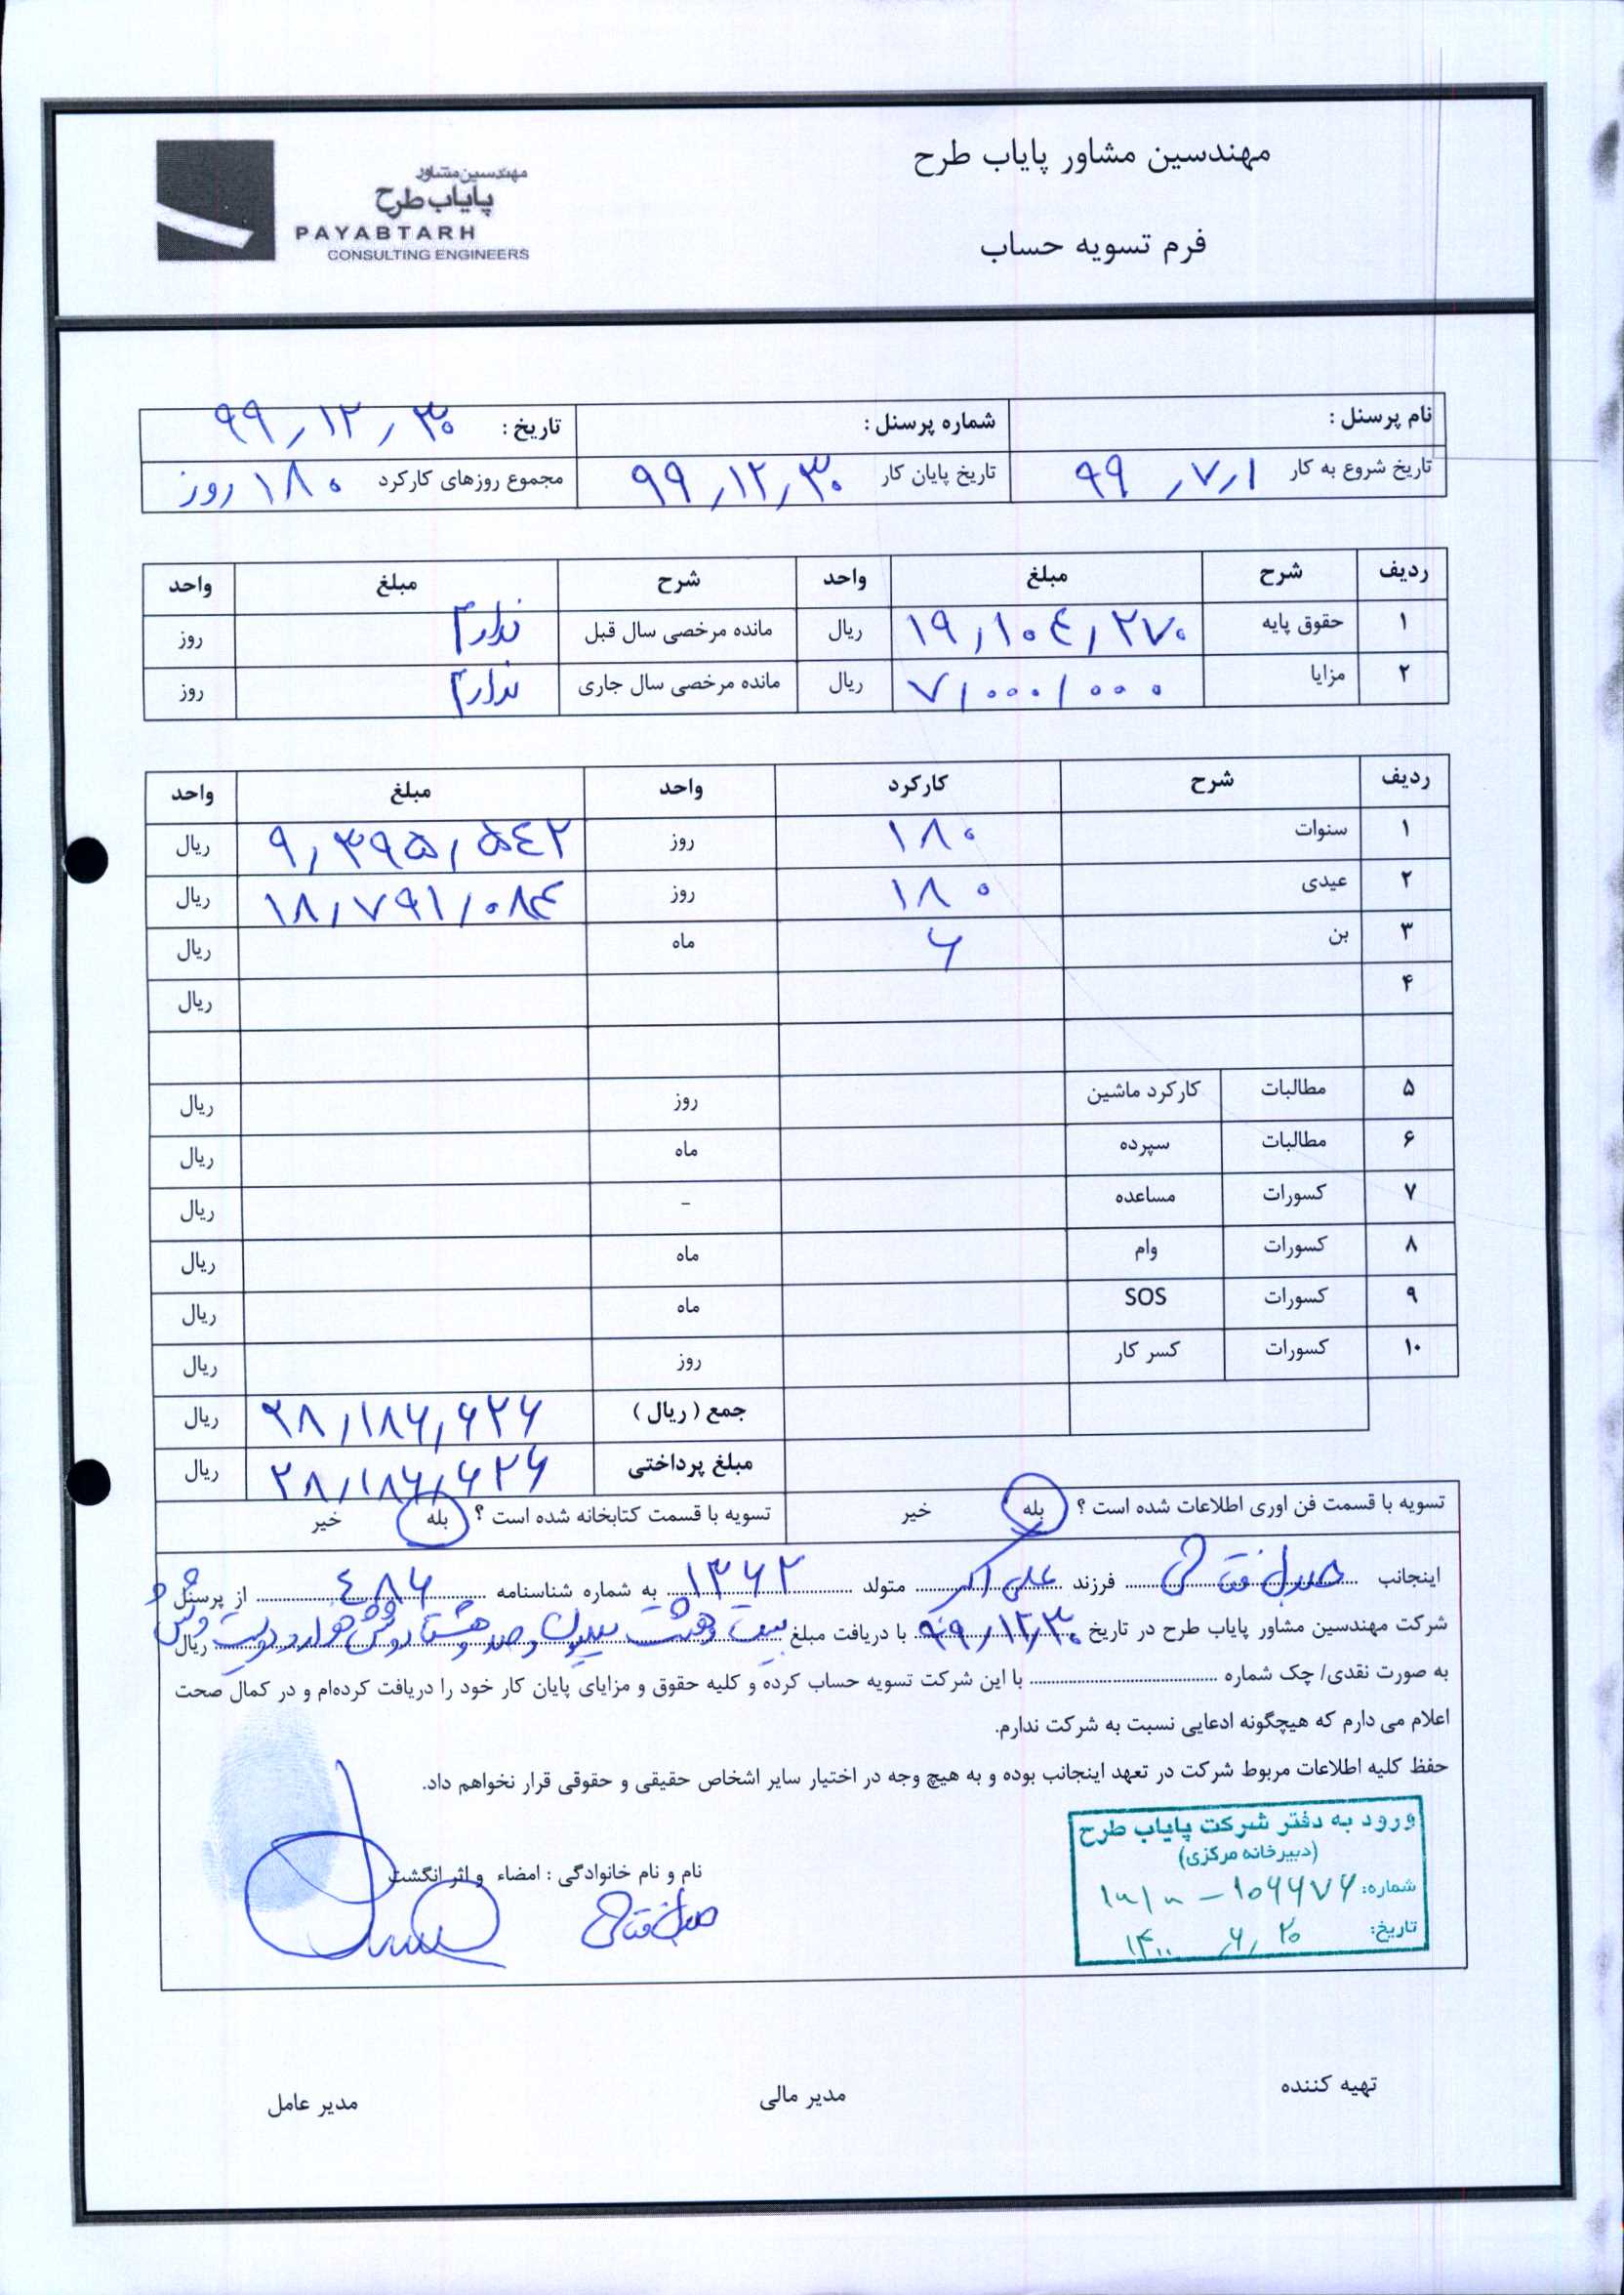 مهندسین مشاور پایاب طرح
مهندسین مشاور
پایاب طرح
PAYABTARH
CONSULTING ENGINEERS
فرم تسویه حساب
نام پرسنل : شماره پرسنل : تاریخ : ۹۹/۱۲/۳۰
تاریخ شروع به کار ۹۹/۷/۱ تاریخ پایان کار ۹۹/۱۲/۳۰ مجموع روزهای کارکرد ۱۸۰ روز
ردیف شرح مبلغ واحد شرح مبلغ واحد
۱ حقوق پایه ۱۹/۱۰۴/۲۷۰ ریال مانده مرخصی سال قبل ندارم روز
۲ مزایا ۷/۰۰۰/۰۰۰ ریال مانده مرخصی سال جاری ندارم روز
ردیف شرح کارکرد واحد مبلغ واحد
۱ سنوات ۱۸۰ روز ۹/۳۹۵/۵۴۲ ریال
۲ عیدی ۱۸۰ روز ۱۸/۷۹۱/۰۸۴ ریال
۳ بن ۶ ماه ریال
۴ ریال
۵ مطالبات کارکرد ماشین روز ریال
۶ مطالبات سپرده ماه ریال
۷ کسورات مساعده - ریال
۸ کسورات وام ماه ریال
۹ کسورات SOS ماه ریال
۱۰ کسورات کسر کار روز ریال
جمع ( ریال ) ۲۸/۱۸۶/۶۲۶ ریال
مبلغ پرداختی ۲۸/۱۸۶/۶۲۶ ریال
تسویه با قسمت فن اوری اطلاعات شده است ؟ بله خیر تسویه با قسمت کتابخانه شده است ؟ بله خیر
اینجانب فتاحی فرزند علی اکبر متولد ۱۳۶۲ به شماره شناسنامه ۴۸۶ از پرسنل
شرکت مهندسین مشاور پایاب طرح در تاریخ ۹۹/۱۲/۳۰ با دریافت مبلغ بیست و هشت میلیون و صد و هشتاد و شش هزار و ریال
به صورت نقدی/ چک شماره با این شرکت تسویه حساب کرده و کلیه حقوق و مزایای پایان کار خود را دریافت کرده‌ام و در کمال صحت
اعلام می دارم که هیچگونه ادعایی نسبت به شرکت ندارم.
حفظ کلیه اطلاعات مربوط شرکت در تعهد اینجانب بوده و به هیچ وجه در اختیار سایر اشخاص حقیقی و حقوقی قرار نخواهم داد.
ورود به دفتر شرکت پایاب طرح
(دبیرخانه مرکزی)
شماره:
تاریخ: ۱۴۰۰/۶/۲۰
نام و نام خانوادگی : امضاء و اثر انگشت
فتاحی
تهیه کننده مدیر مالی مدیر عامل